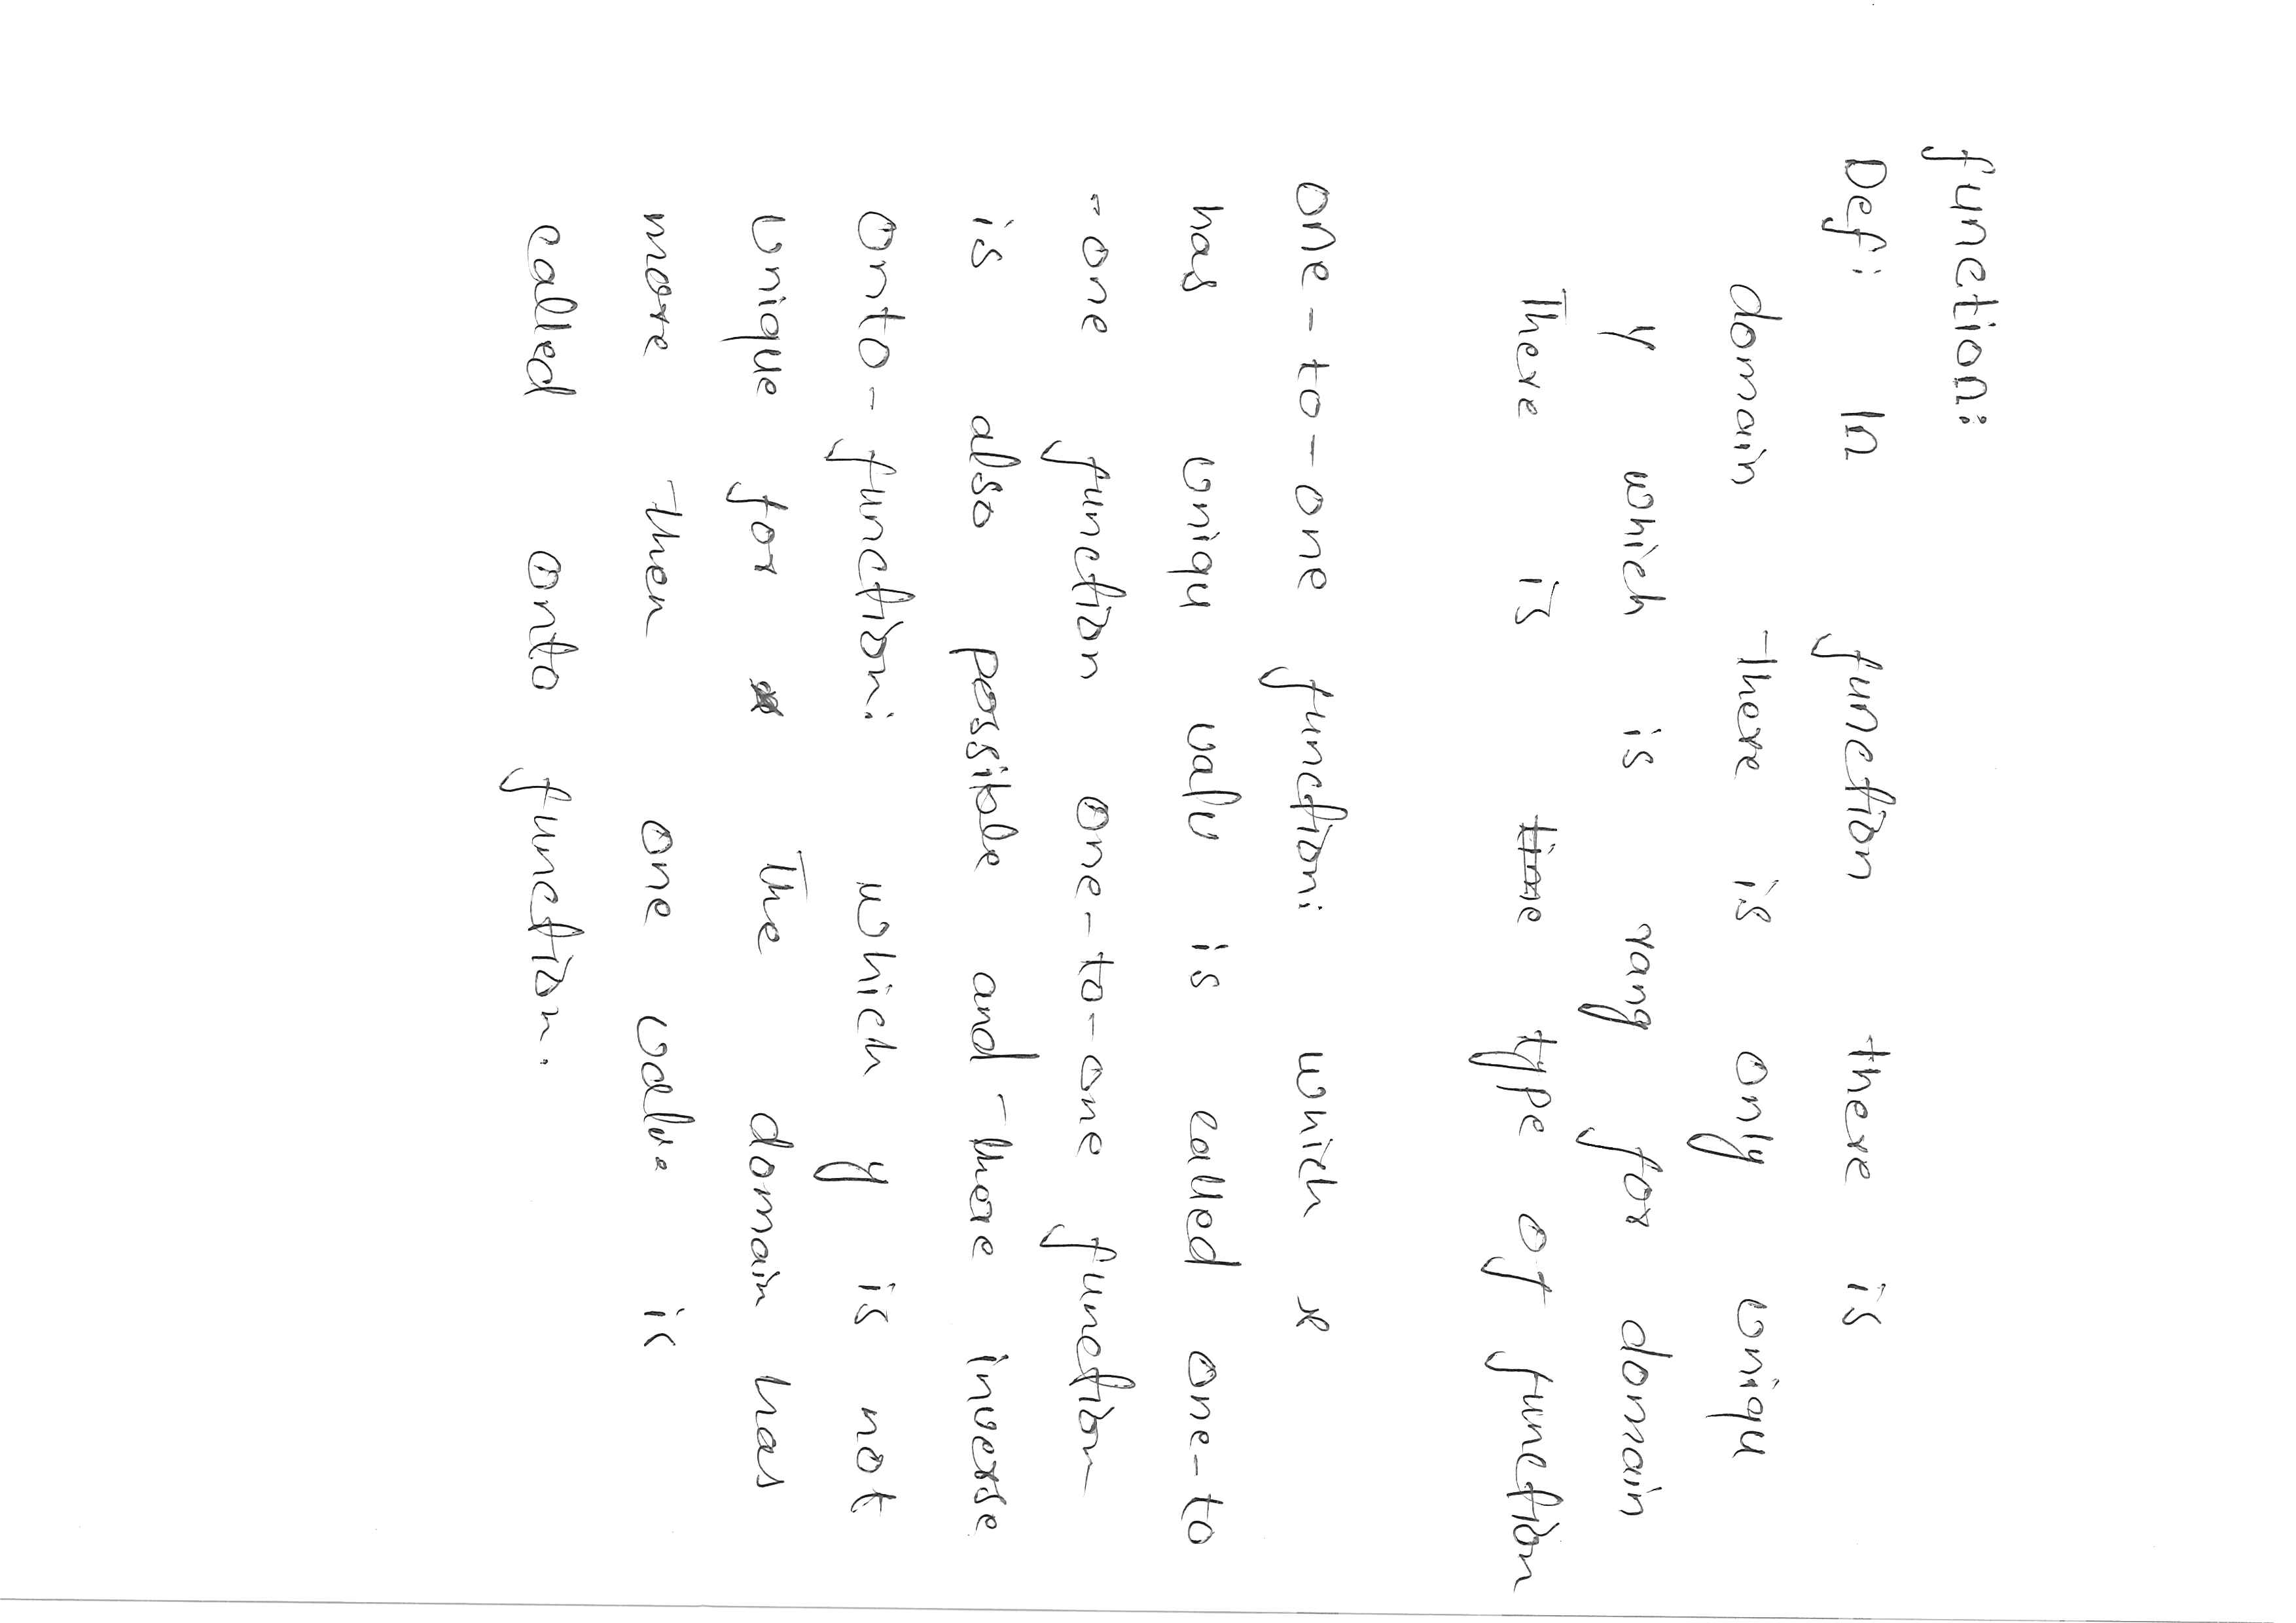 function:
Def: In function there is
domain there is only uniqu
y which is rang for domain
There is time type of function
one-to-one function: which x
has uniqu valu is called one-to
-one function one-to-one function
is also possible and there inverse
onto-function: which y is not
unique for the domain has
more then one value is
called onto function.